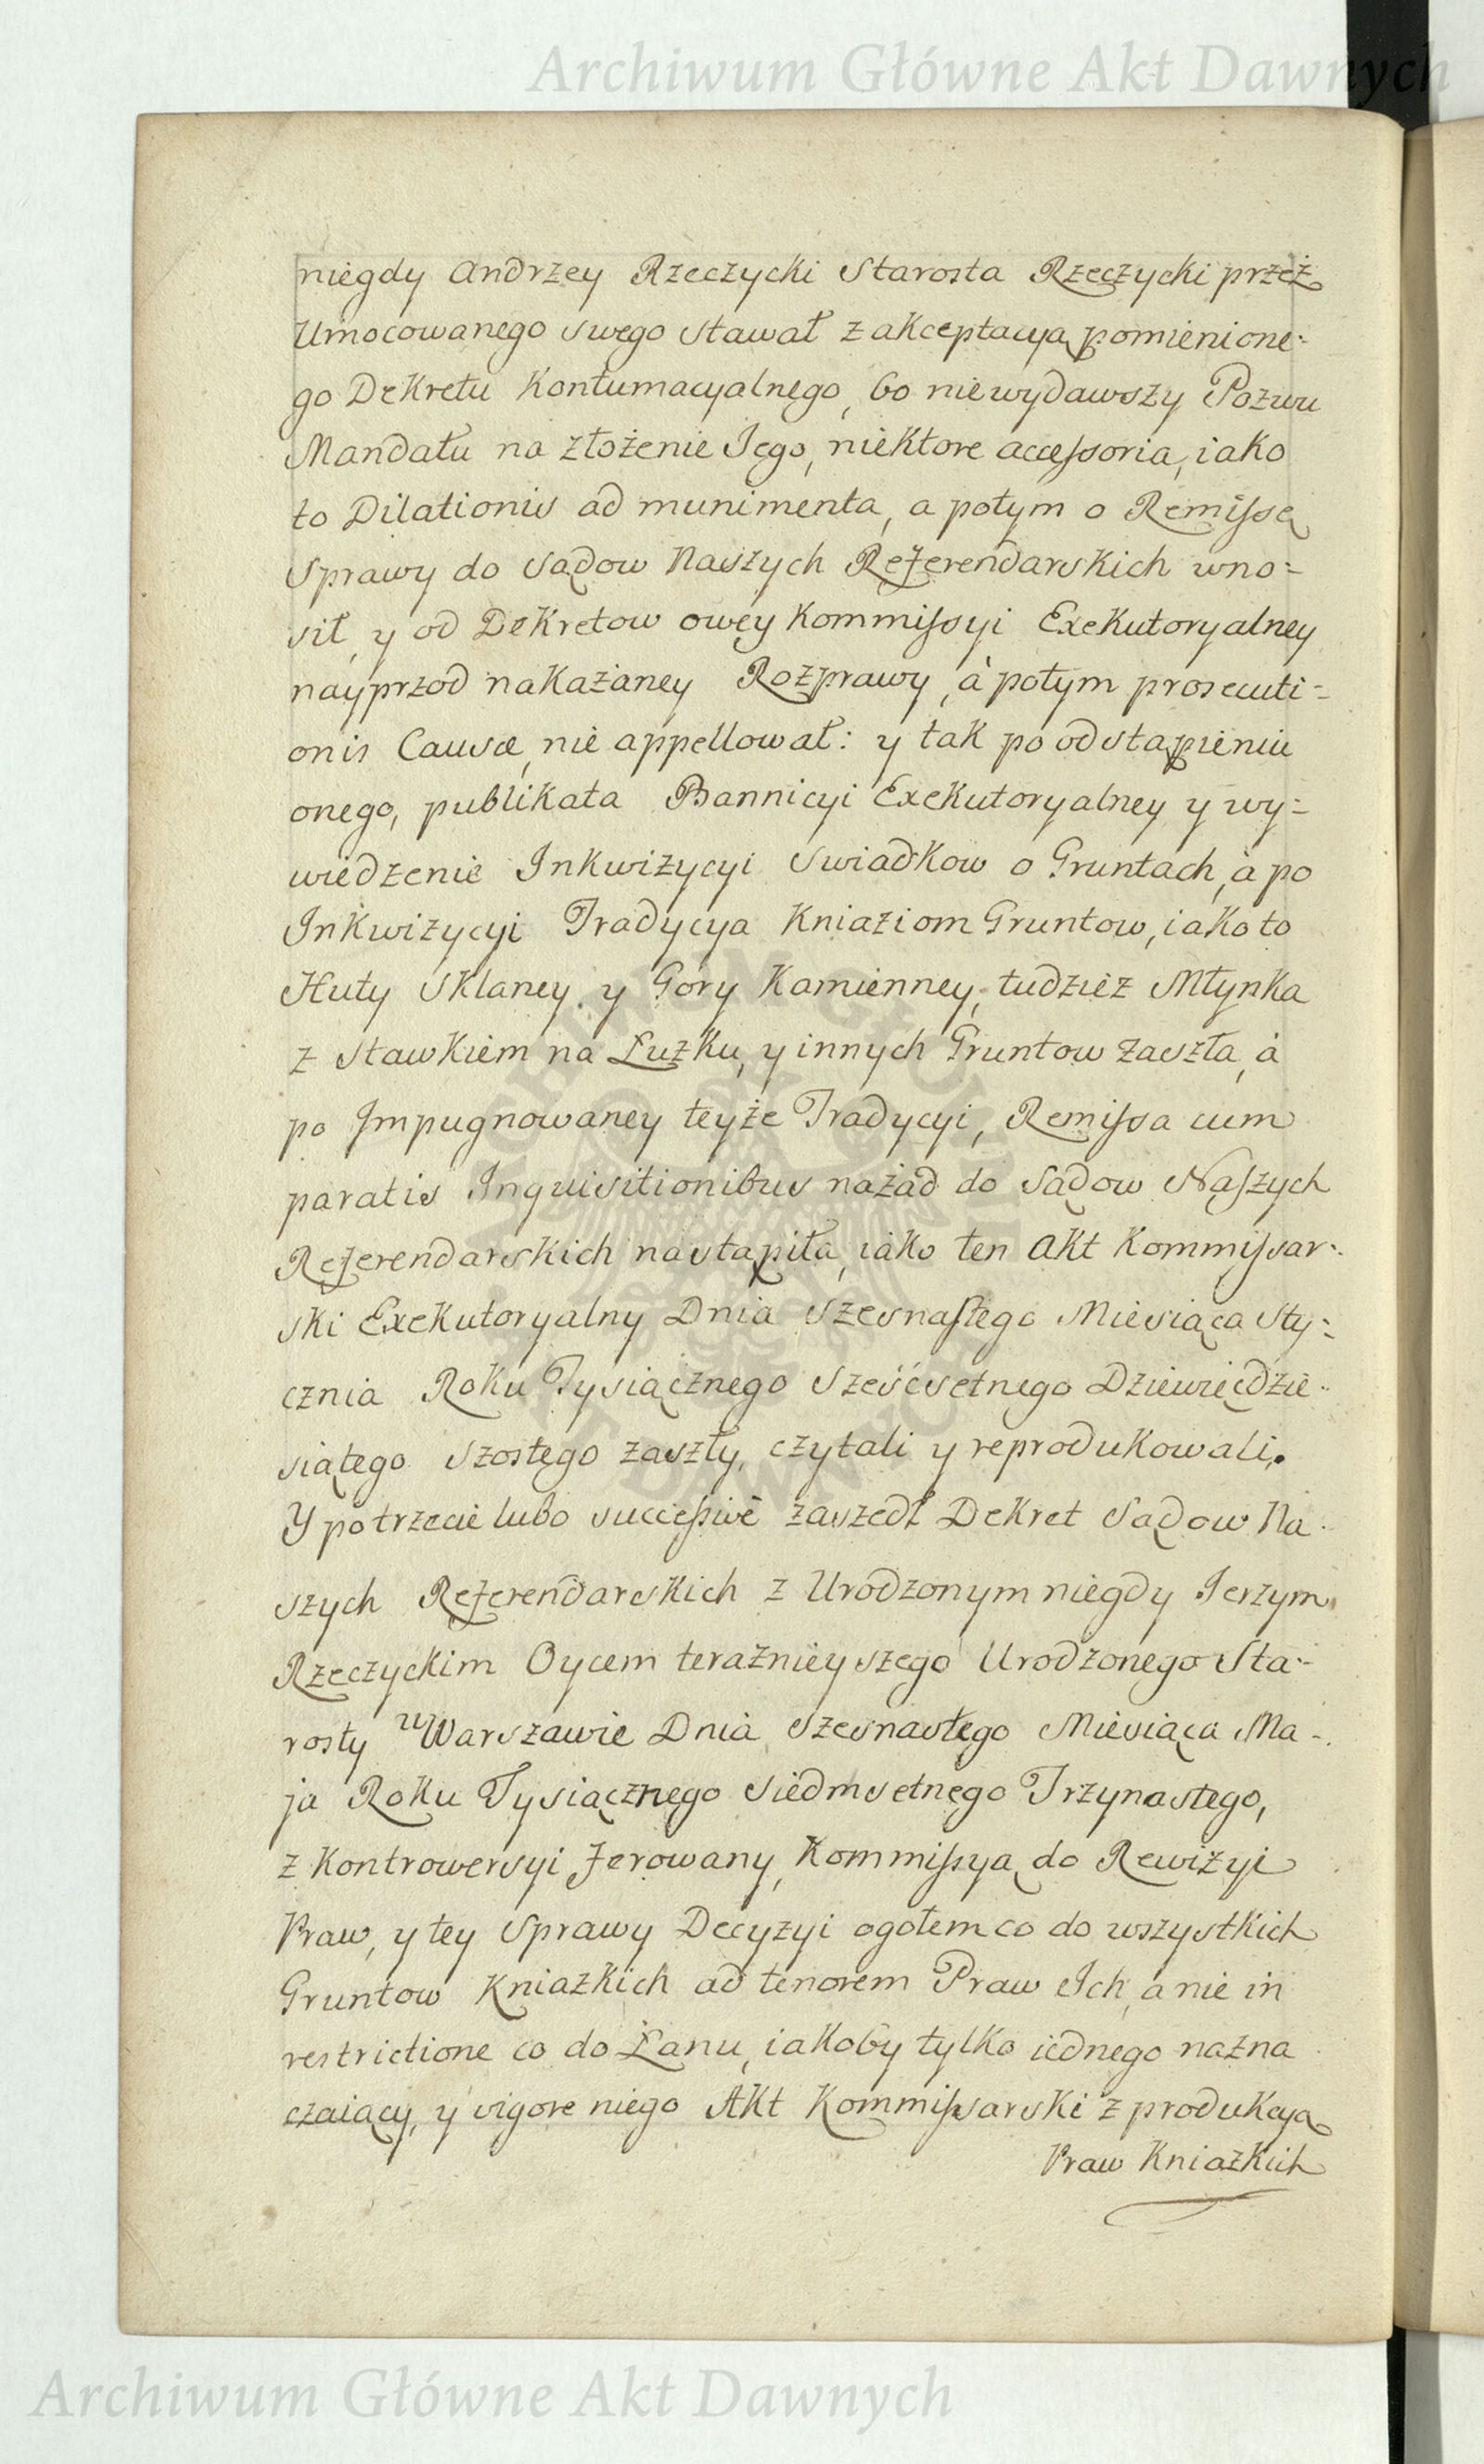 Archiwum Główne Akt Dawnych
niegdy Andrzey Rzeczycki Starosta Rzeczycki przez
Umocowanego swego stawał z akceptacyą pomienione-
go Dekretu Kontumacyalnego, bo nie wydawszy Pozwu
Mandatu na złożenie Jego, niektore accessoria, iako
to Dilationis ad munimenta, a potym o Remissę
Sprawy do Sądow Naszych Referendarskich wno-
sił, y od Dekretow owey Kommissyi Exekutoryalney
nayprzod nakazaney Rozprawy, à potym prosecuti-
onis Causæ, nie appellował: y tak po odstąpieniu
onego, publikata Bannicyi Exekutoryalney y wy-
wiedzenie Inkwizycyi Swiadkow o Gruntach, à po
Inkwizycyi Tradycya Kniaziom Gruntow, iako to
Huty Sklaney y Gory Kamienney, tudziez Młynka
z Stawkiem na Łużku, y innych Gruntow zaszła, à
po Impugnowaney teyże Tradycyi, Remissa cum
paratis Inquisitionibus nazad do Sądow Naszych
Referendarskich nastąpiła, iako ten Akt Kommissar-
ski Exekutoryalny Dnia Szesnastego Miesiąca Sty-
cznia Roku Tysiącznego Sześćsetnego Dziewięćdzie-
siątego Szostego zaszły, czytali y reprodukowali.
Y potrzecie lubo successivè zaszedł Dekret Sądow Na-
szych Referendarskich z Urodzonym niegdy Jerzym
Rzeczyckim Oycem teraznieyszego Urodzonego Sta-
rosty w Warszawie Dnia Szesnastego Miesiąca Ma-
ja Roku Tysiącznego Siedmsetnego Trzynastego,
z Kontrowersyi ferowany, Kommissyą do Rewizyi
Praw, y tey Sprawy Decyzyi ogołem co do wszystkich
Gruntow Kniazkich ad tenorem Praw Ich, a nie in
restrictione co do Łanu, iakoby tylko iednego nazna
czaiący, y vigore niego Akt Kommissarski z produkcyą
Praw Kniazkich
Archiwum Główne Akt Dawnych